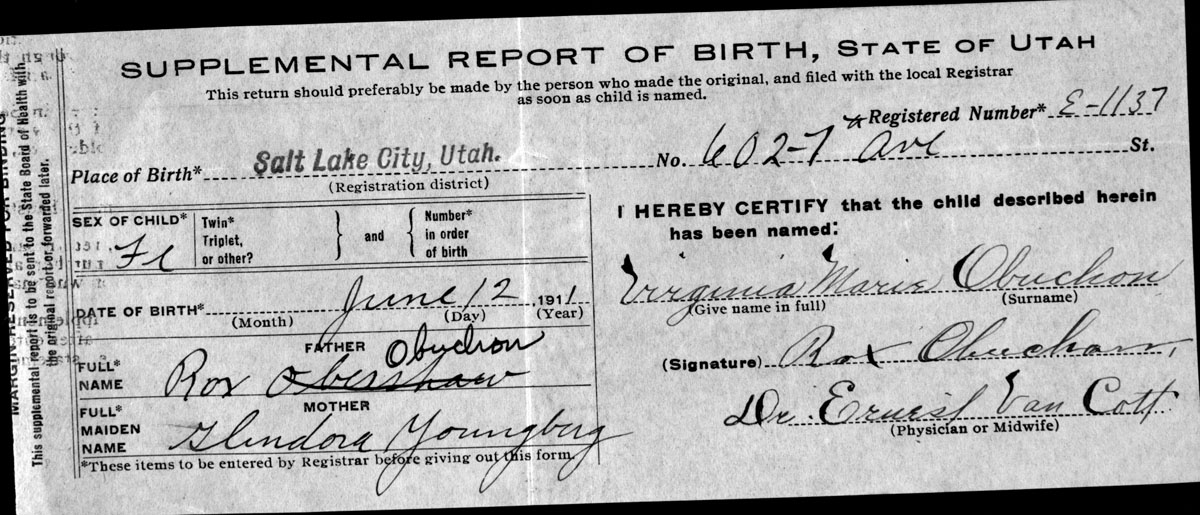 SUPPLEMENTAL REPORT OF BIRTH, STATE OF UTAH
This return should preferably be made by the person who made the original, and filed with the local Registrar
as soon as child is named.
Registered Number* E-1137
Place of Birth* Salt Lake City, Utah. No. 602-7 Ave St.
(Registration district)
SEX OF CHILD* Fe
Twin* Triplet, or other? } and { Number* in order of birth
DATE OF BIRTH* June 12 1911
(Month) (Day) (Year)
FATHER
FULL* NAME Rox Obuchon
MOTHER
FULL* MAIDEN NAME Glendora Youngberg
*These items to be entered by Registrar before giving out this form.
I HEREBY CERTIFY that the child described herein
has been named:
Virginia Marie Obuchon
(Give name in full) (Surname)
(Signature) Rox Obuchon,
Dr. Ernest Van Cott
(Physician or Midwife)
MARGIN RESERVED FOR BINDING
This supplemental report is to be sent to the State Board of Health with
the original report or forwarded later.